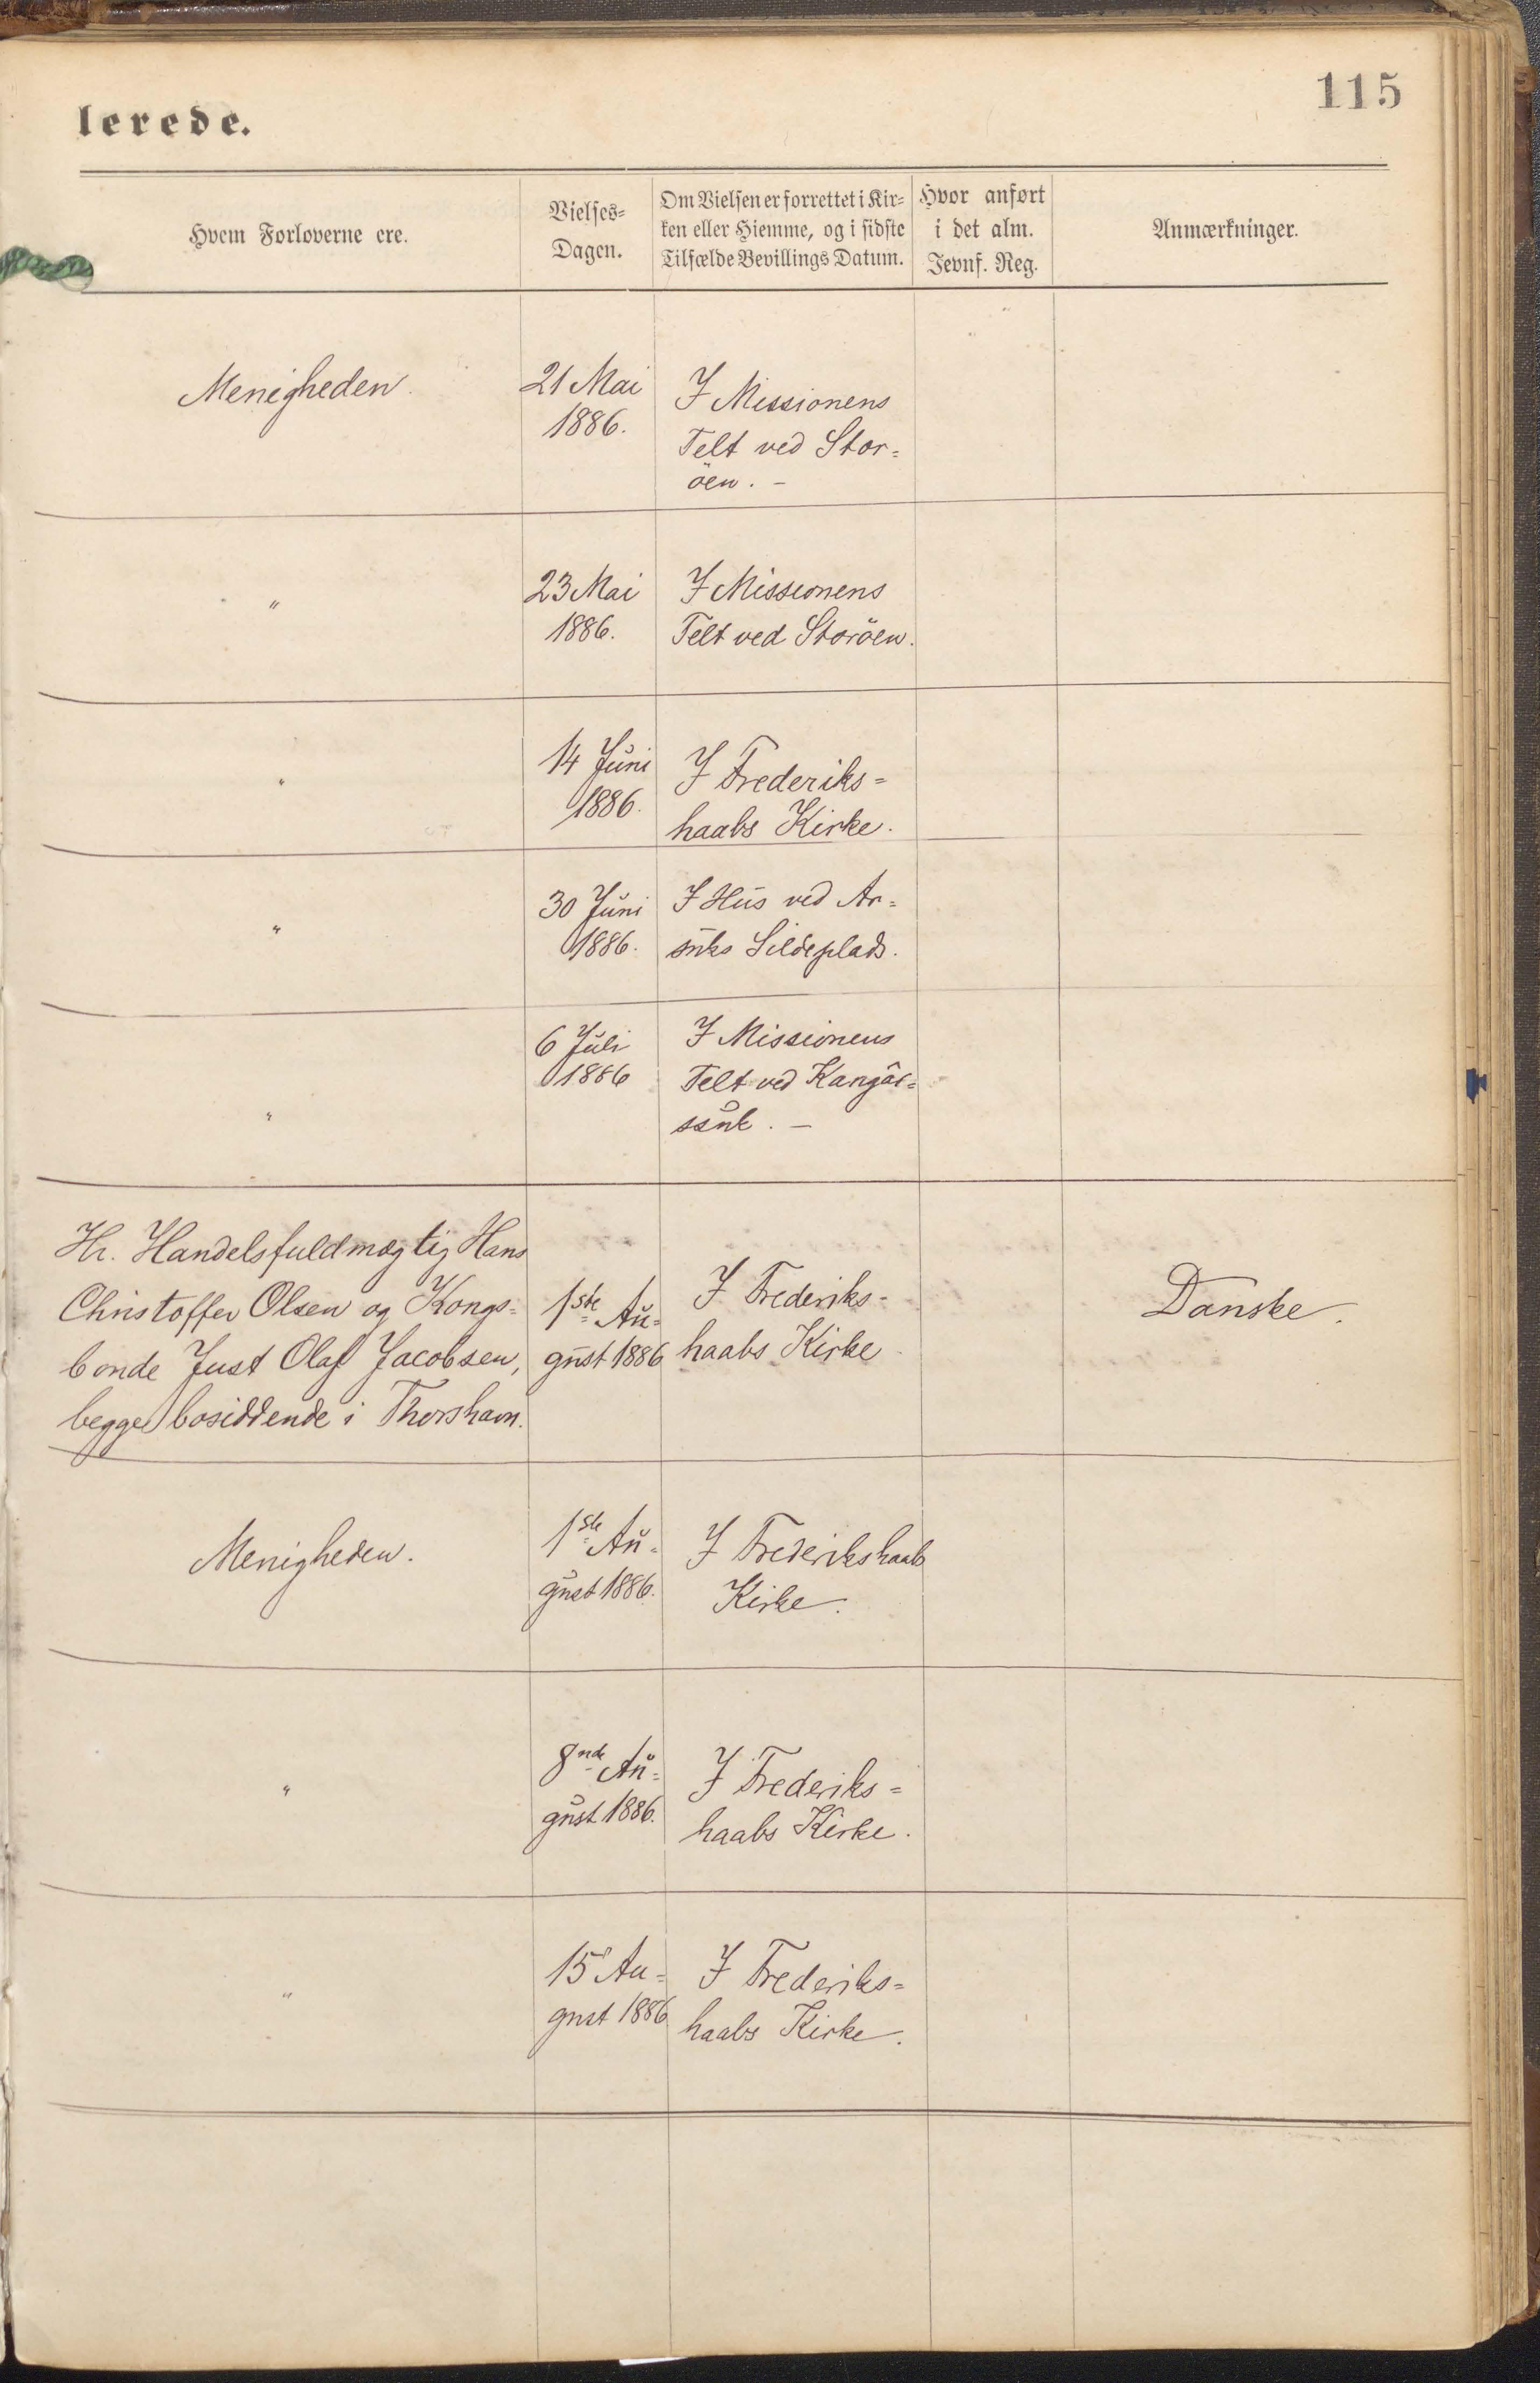 115
lerede.
Hvem Forloverne ere.
Vielses-
Dagen.
Om Vielsen er forrettet i Kir-
ken eller Hiemme, og i sidste
Tilfælde Bevillings Datum.
Hvor anført
i det alm.
Jevnf. Reg.
Anmærkninger.
Menigheden.
21 Mai
1886.
I Missionens
Telt ved Stor=
öen. -
"
23 Mai
1886.
I Missionens
Telt ved Storöen.
"
14 Juni
1886.
I Frederiks=
haabs Kirke.
"
30 Juni
1886.
I Hus ved Ar=
suks Sildeplads.
"
6 Juli
1886
I Missionens
Telt ved Kangâr=
ssuk. -
Hr. Handelsfuldmægtig Hans
Christoffer Olsen og Kongs=
bonde Just Olaf Jacobsen,
begge bosiddende i Thorshavn.
1ste Au=
gust 1886
I Frederiks=
haabs Kirke.
Danske.
Menigheden.
1ste Au=
gust 1886.
I Frederikshaab
Kirke.
"
8nde Au=
gust 1886.
I Frederiks=
haabs Kirke.
"
15 Au=
gust 1886
I Frederiks=
haabs Kirke.